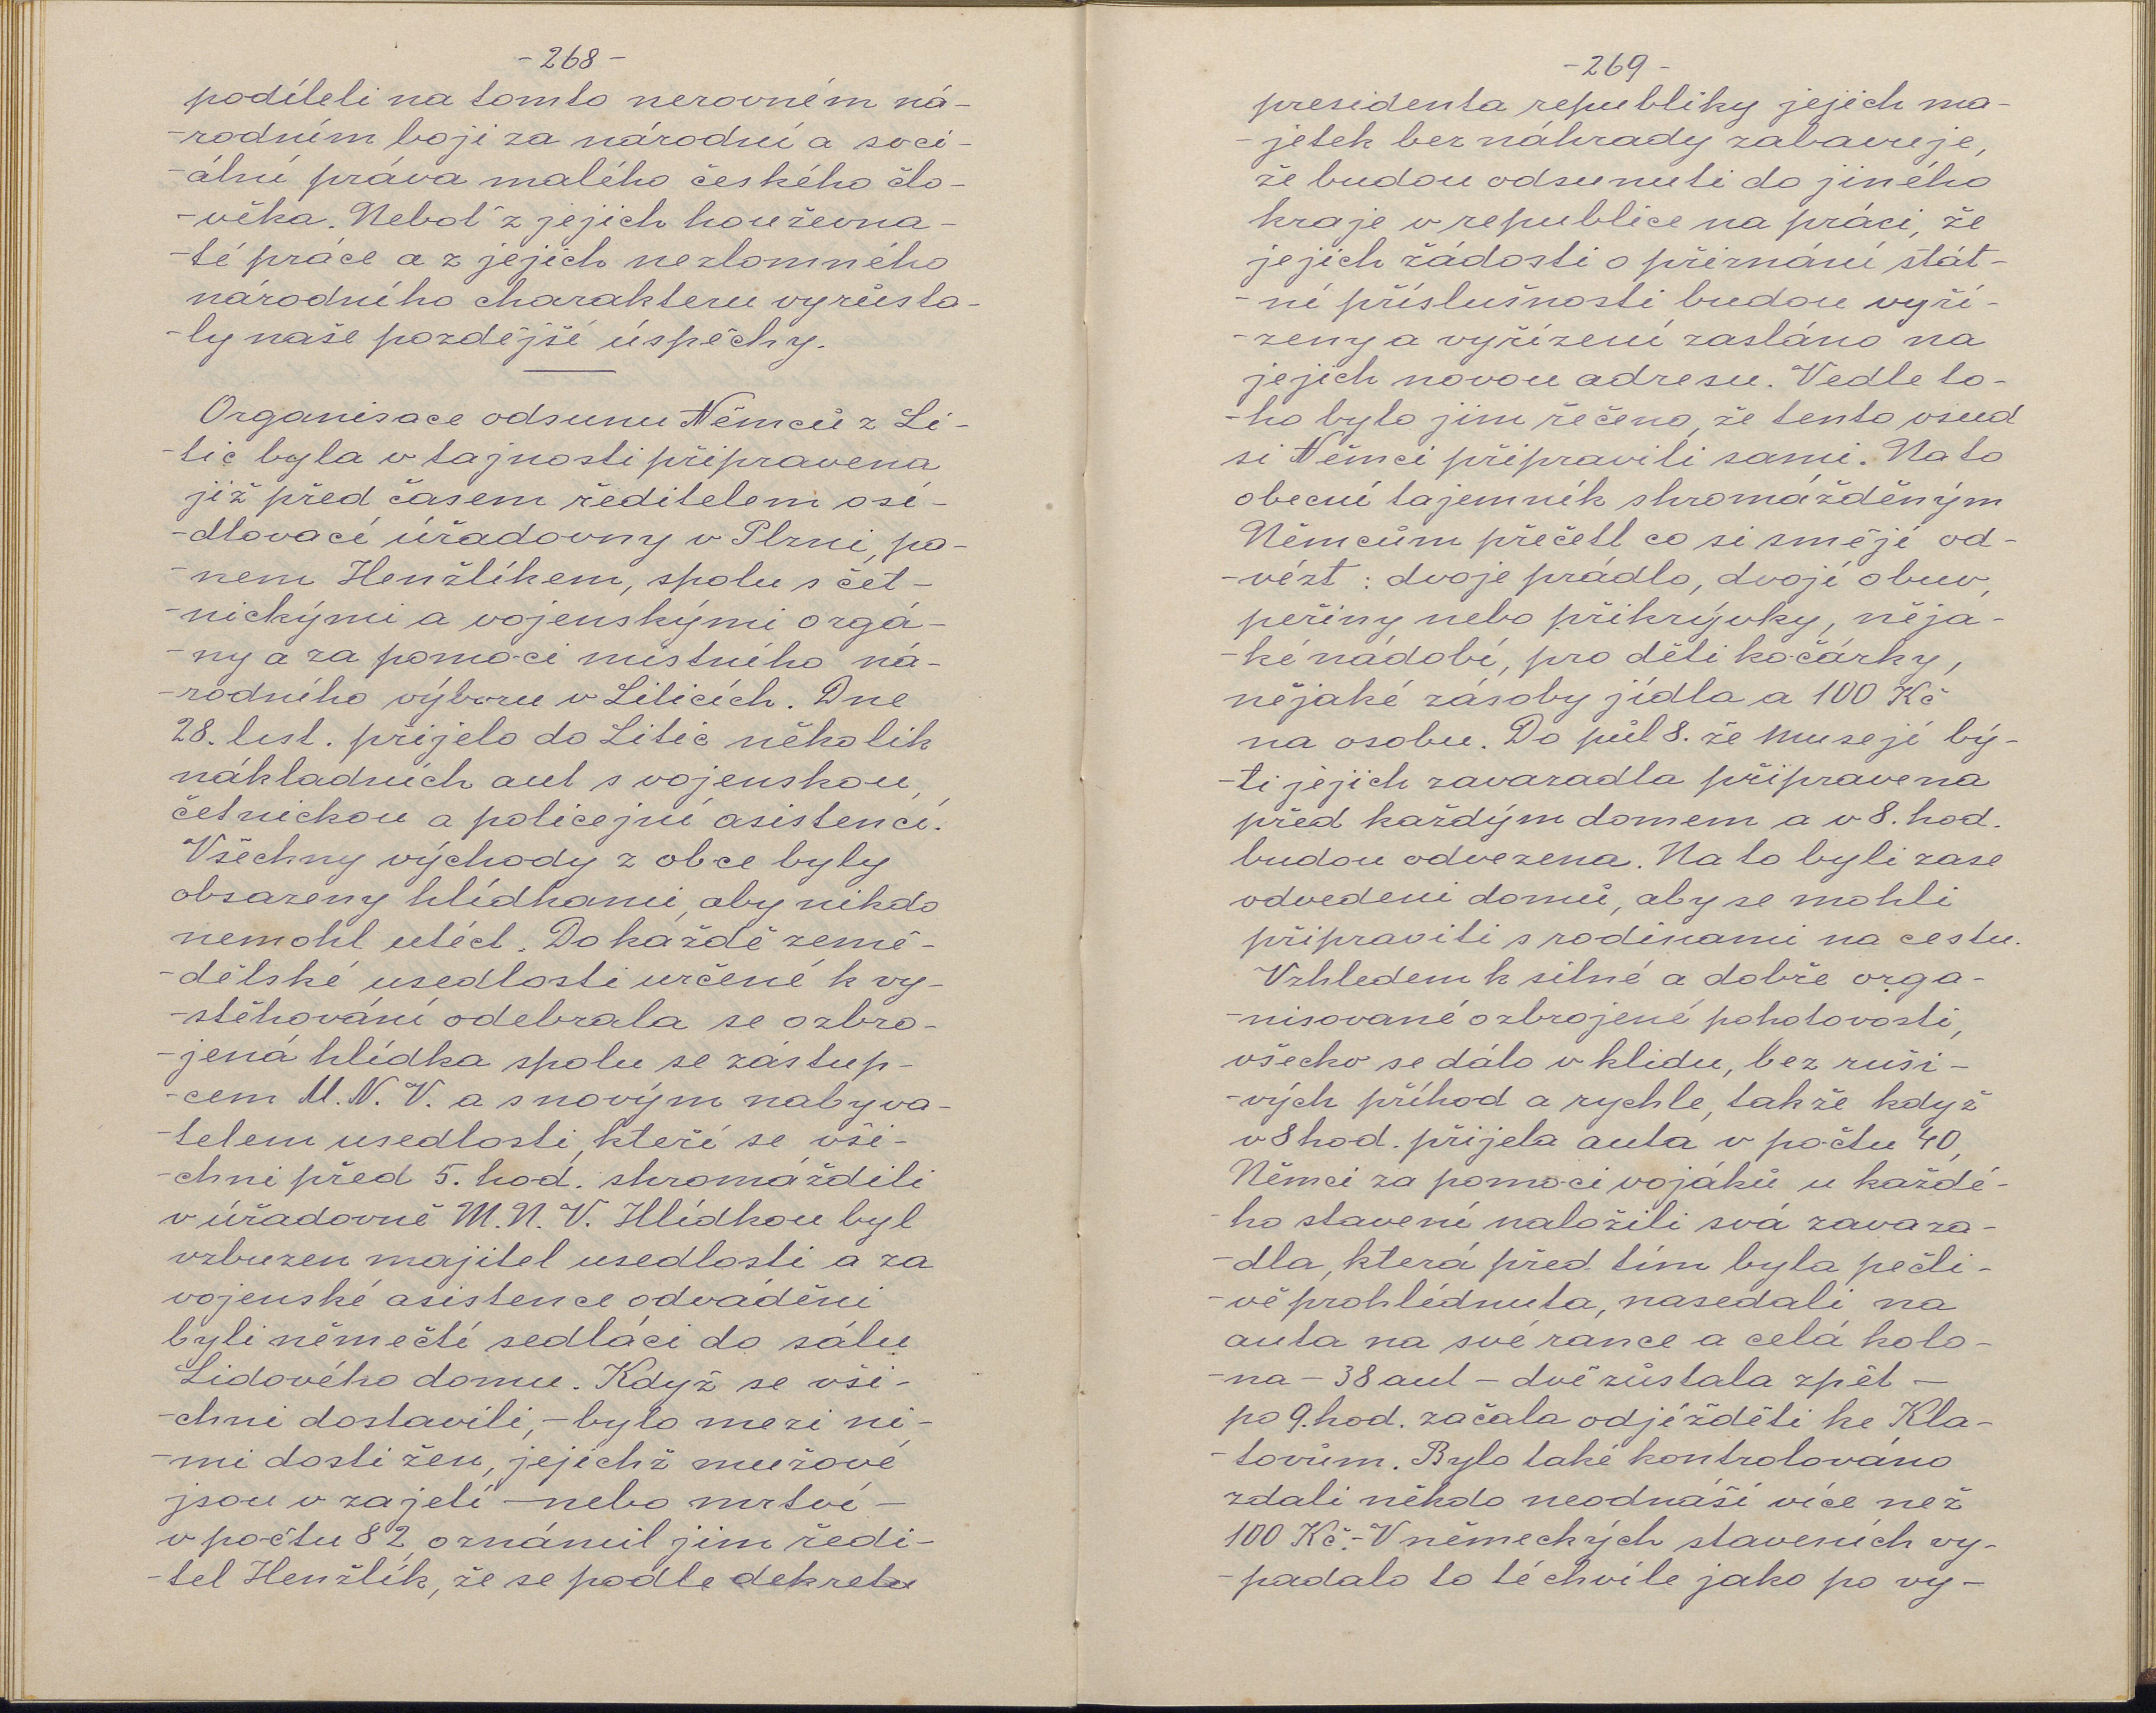 -268-
podíleli na tomto nerovném ná-
-rodním boji za národní a soci-
-ální práva malého českého člo-
-věka. Neboť z jejich houževna-
-té práce a z jejich nezlomného
národního charakteru vyrůsta-
-ly naše pozdější úspěchy.
Organisace odsunu Němců z Li-
-tic byla v tajnosti připravena
již před časem ředitelem osi-
-dlovací úřadovny v Plzni, pa-
-nem Henžlíkem, spolu s čet-
-nickými a vojenskými orgá-
-ny a za pomoci místního ná-
-rodního výboru v Liticích. Dne
28. list. přijelo do Litic několik
nákladních aut s vojenskou,
četnickou a policejní asistencí.
Všechny východy z obce byly
obsazeny hlídkami, aby nikdo
nemohl utéct. Do každé země-
-dělské usedlosti určené k vy-
-stěhování odebrala se ozbro-
-jená hlídka spolu se zástup-
-cem M.N.V. a s novým nabyva-
-telem usedlosti, kteří se vši-
-chni před 5. hod. shromáždili
v úřadovně M.N.V. Hlídkou byl
vzbuzen majitel usedlosti a za
vojenské asistence odváděni
byli němečtí sedláci do sálu
Lidového domu. Když se vši-
-chni dostavili, - bylo mezi ni-
-mi dosti žen, jejichž mužové
jsou v zajetí - nebo mrtví -
v počtu 82, oznámil jim ředi-
-tel Henžlík, že se podle dekretu
-269-
presidenta republiky jejich ma-
-jetek bez náhrady zabavuje,
že budou odsunuti do jiného
kraje v republice na práci, že
jejich žádosti o přiznání stát-
-ní příslušnosti budou vyří-
-zeny a vyřízení zasláno na
jejich novou adresu. Vedle to-
-ho bylo jim řečeno, že tento osud
si Němci připravili sami. Na to
obecní tajemník shromážděným
Němcům přečetl co si smějí od-
-vézt: dvoje prádlo, dvojí obuv,
peřiny nebo přikrývky, něja-
-ké nádobí, pro děti kočárky,
nějaké zásoby jídla a 100 Kč
na osobu. Do půl 8. že musejí bý-
-ti jejich zavazadla připravena
před každým domem a v 8. hod.
budou odvezena. Na to byli zase
odvedeni domů, aby se mohli
připraviti s rodinami na cestu.
Vzhledem k silné a dobře orga-
-nisované ozbrojené pohotovosti,
všecko se dálo v klidu, bez ruši-
-vých příhod a rychle, takže když
v 8 hod. přijela auta v počtu 40,
Němci za pomoci vojáků u každé-
-ho stavení naložili svá zavaza-
-dla, která před tím byla pečli-
-vě prohlédnuta, nasedali na
auta na své rance a celá kolo-
-na - 38 aut - dvě zůstala zpět -
po 9. hod. začala odjížděti ke Kla-
-tovům. Bylo také kontrolováno
zdali někdo neodnáší více než
100 Kč.- V německých staveních vy-
-padalo to té chvíle jako po vy-